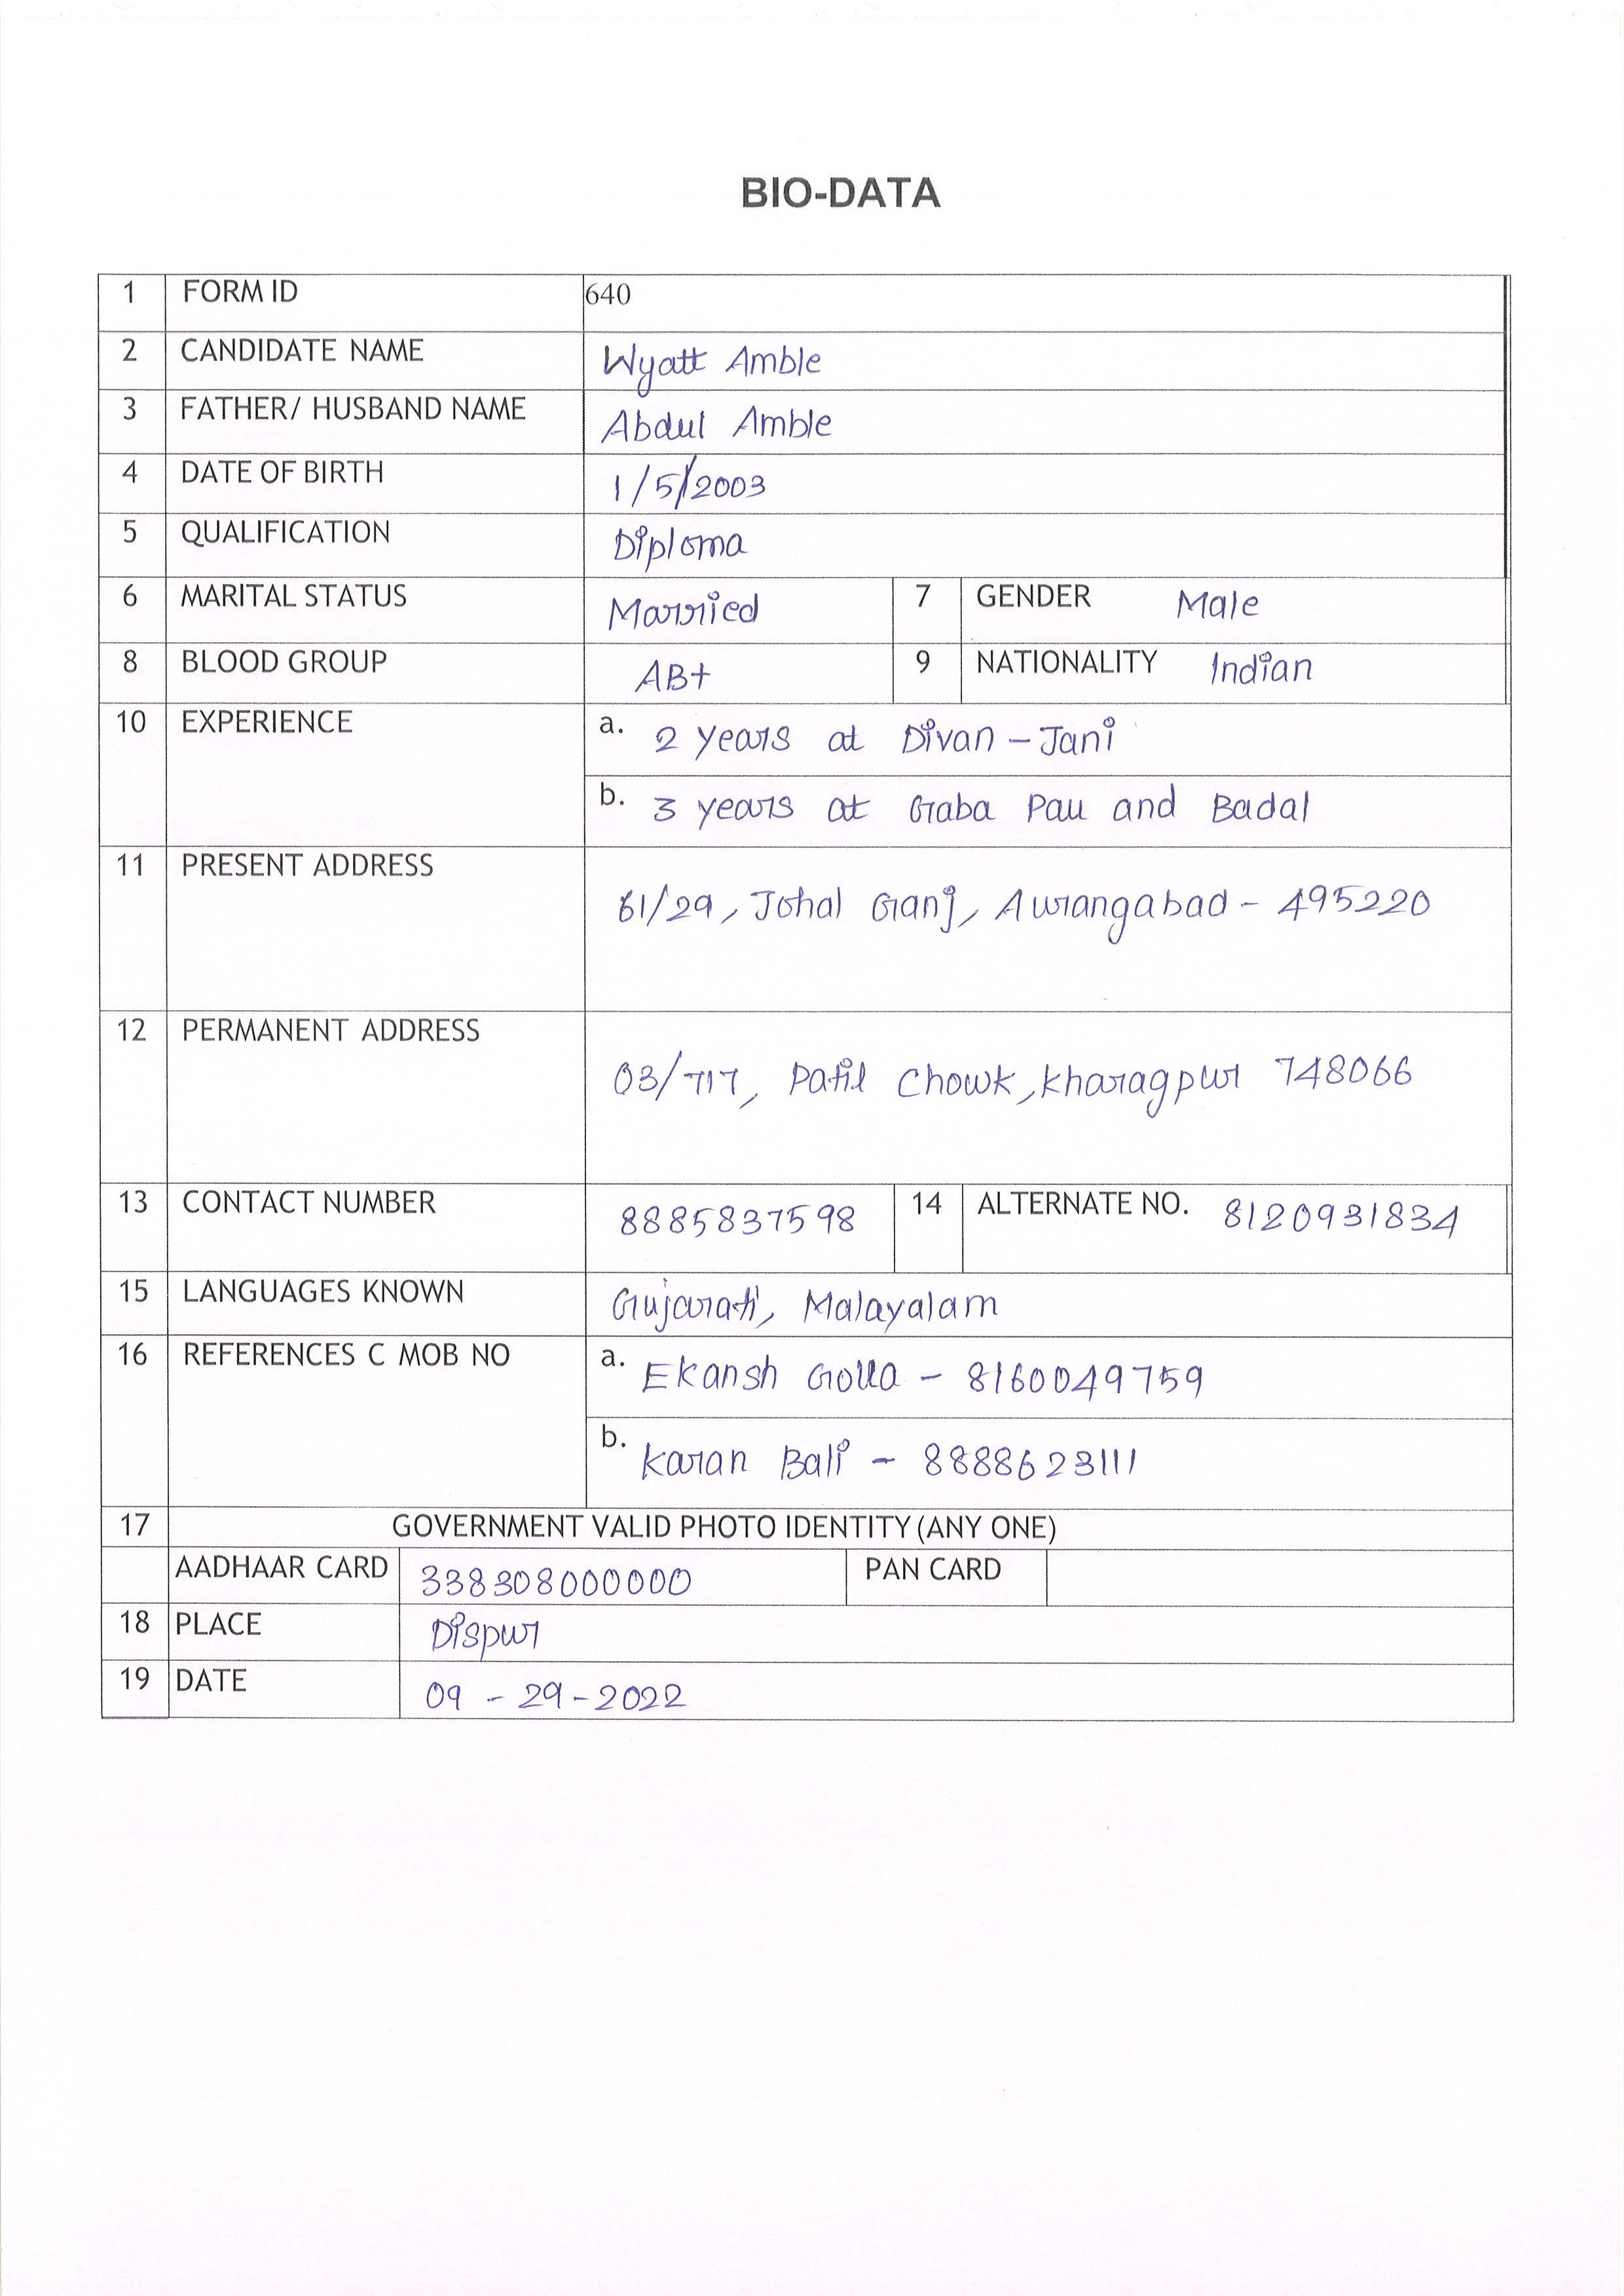 BIO-DATA
1 FORM ID 640
2 CANDIDATE NAME Wyatt Amble
3 FATHER/ HUSBAND NAME Abdul Amble
4 DATE OF BIRTH 1/5/2003
5 QUALIFICATION Diploma
6 MARITAL STATUS Married 7 GENDER Male
8 BLOOD GROUP AB+ 9 NATIONALITY Indian
10 EXPERIENCE a. 2 years at Divan - Jani
b. 3 years at Gaba Pau and Badal
11 PRESENT ADDRESS 61/29, Johal Ganj, Aurangabad - 495220
12 PERMANENT ADDRESS 03/717, Patil Chowk, Kharagpur 748066
13 CONTACT NUMBER 8885837598 14 ALTERNATE NO. 8120931834
15 LANGUAGES KNOWN Gujarati, Malayalam
16 REFERENCES C MOB NO a. Ekansh Golla - 8160049759
b. Karan Bali - 8888623111
17 GOVERNMENT VALID PHOTO IDENTITY (ANY ONE)
AADHAAR CARD 338308000000 PAN CARD
18 PLACE Dispur
19 DATE 09 - 29 - 2022